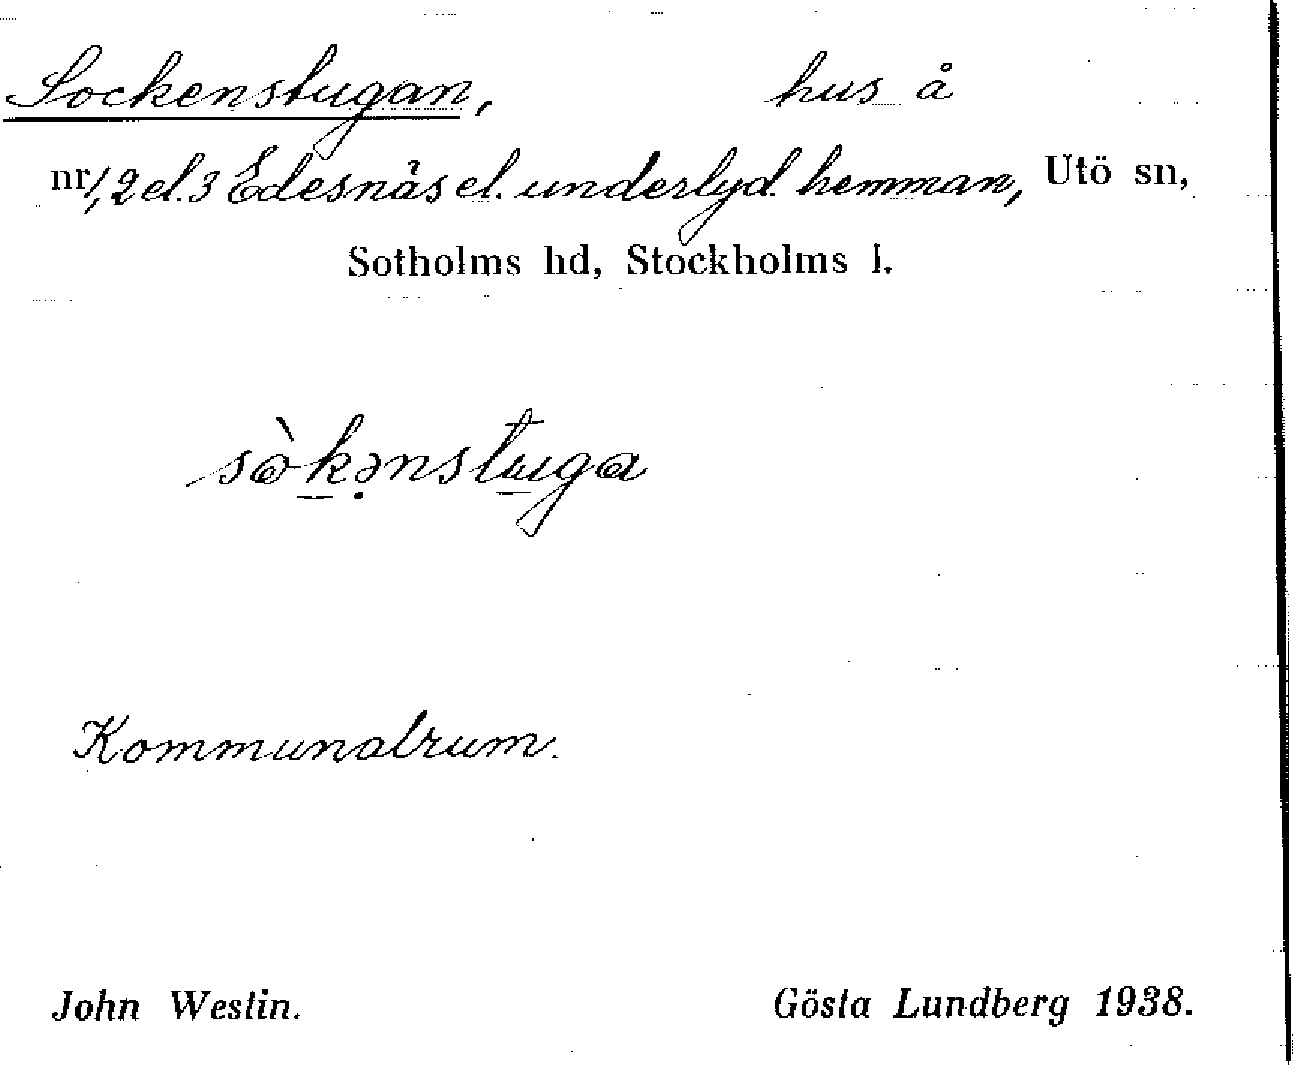 Sockenstugan, hus å
nr 1, 2 el. 3 Edesnäs el. underlyd. hemman, Utö sn,
Sotholms hd, Stockholms l.
sò̱kə̣nstuga
Kommunalrum.
John Westin. Gösta Lundberg 1938.